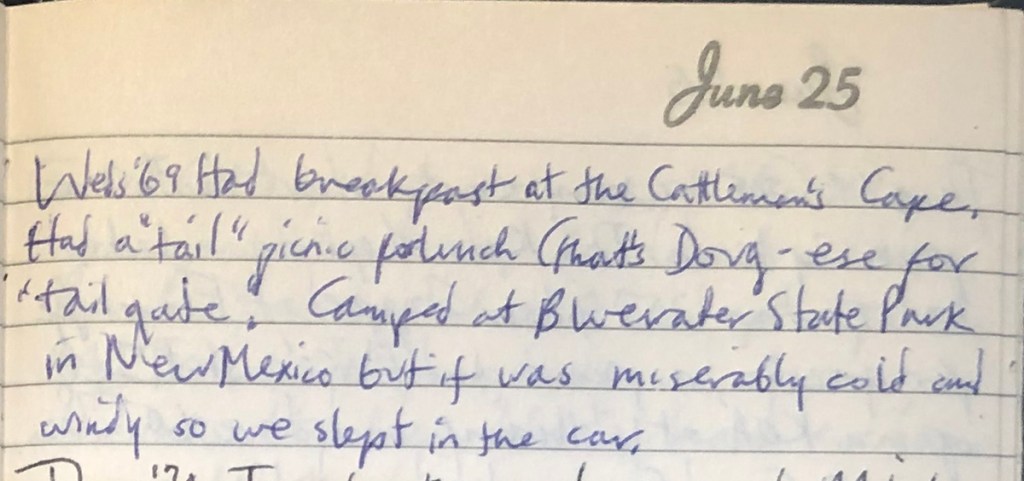 June 25
Weds '69 Had breakfast at the Cattlemen's Cafe.
Had a "tail" picnic for lunch (that's Doug-ese for
"tail gate". Camped at Bluewater State Park
in New Mexico but it was miserably cold and
windy so we slept in the car.